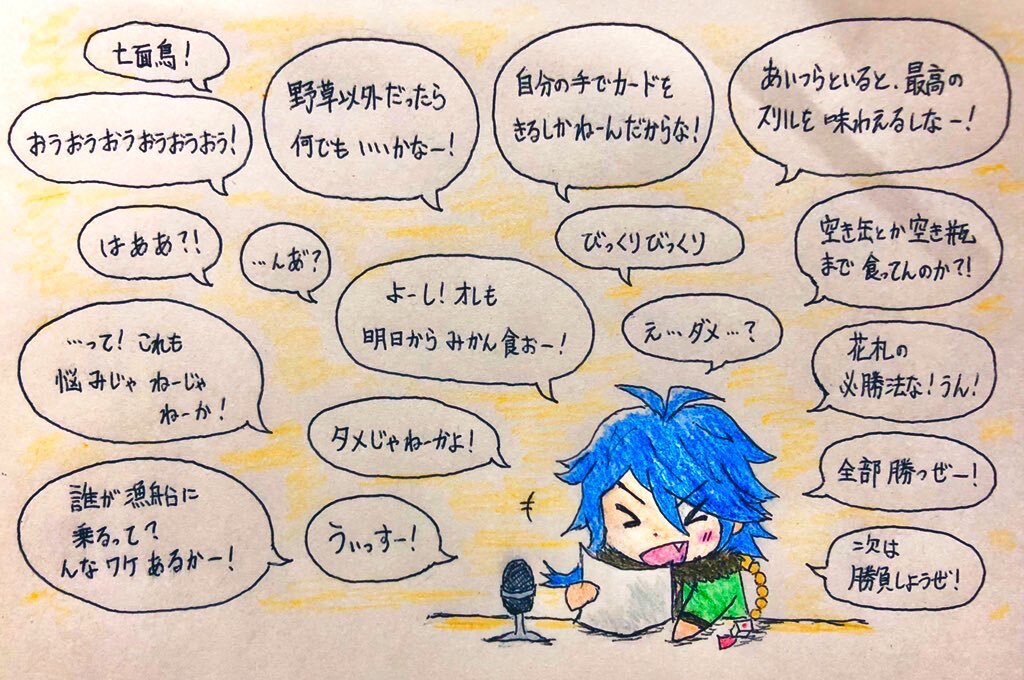 七面鳥!
おうおうおうおうおうおう!
野草以外だったら
何でもいいかなー!
自分の手でカードを
きるしかねーんだからな!
あいつらといると、最高の
スリルを味わえるしなー!
はああ?!
…んあ゛?
びっくりびっくり
空き缶とか空き瓶
まで食ってんのか?!
よーし!オレも
明日からみかん食おー!
え…ダメ…?
…って!これも
悩みじゃねーじゃ
ねーか!
花札の
必勝法な!うん!
ダメじゃねーかよ!
全部勝っぜー!
誰が漁船に
乗るって?
んなワケあるかー!
うぃっすー!
次は
勝負しようぜ!